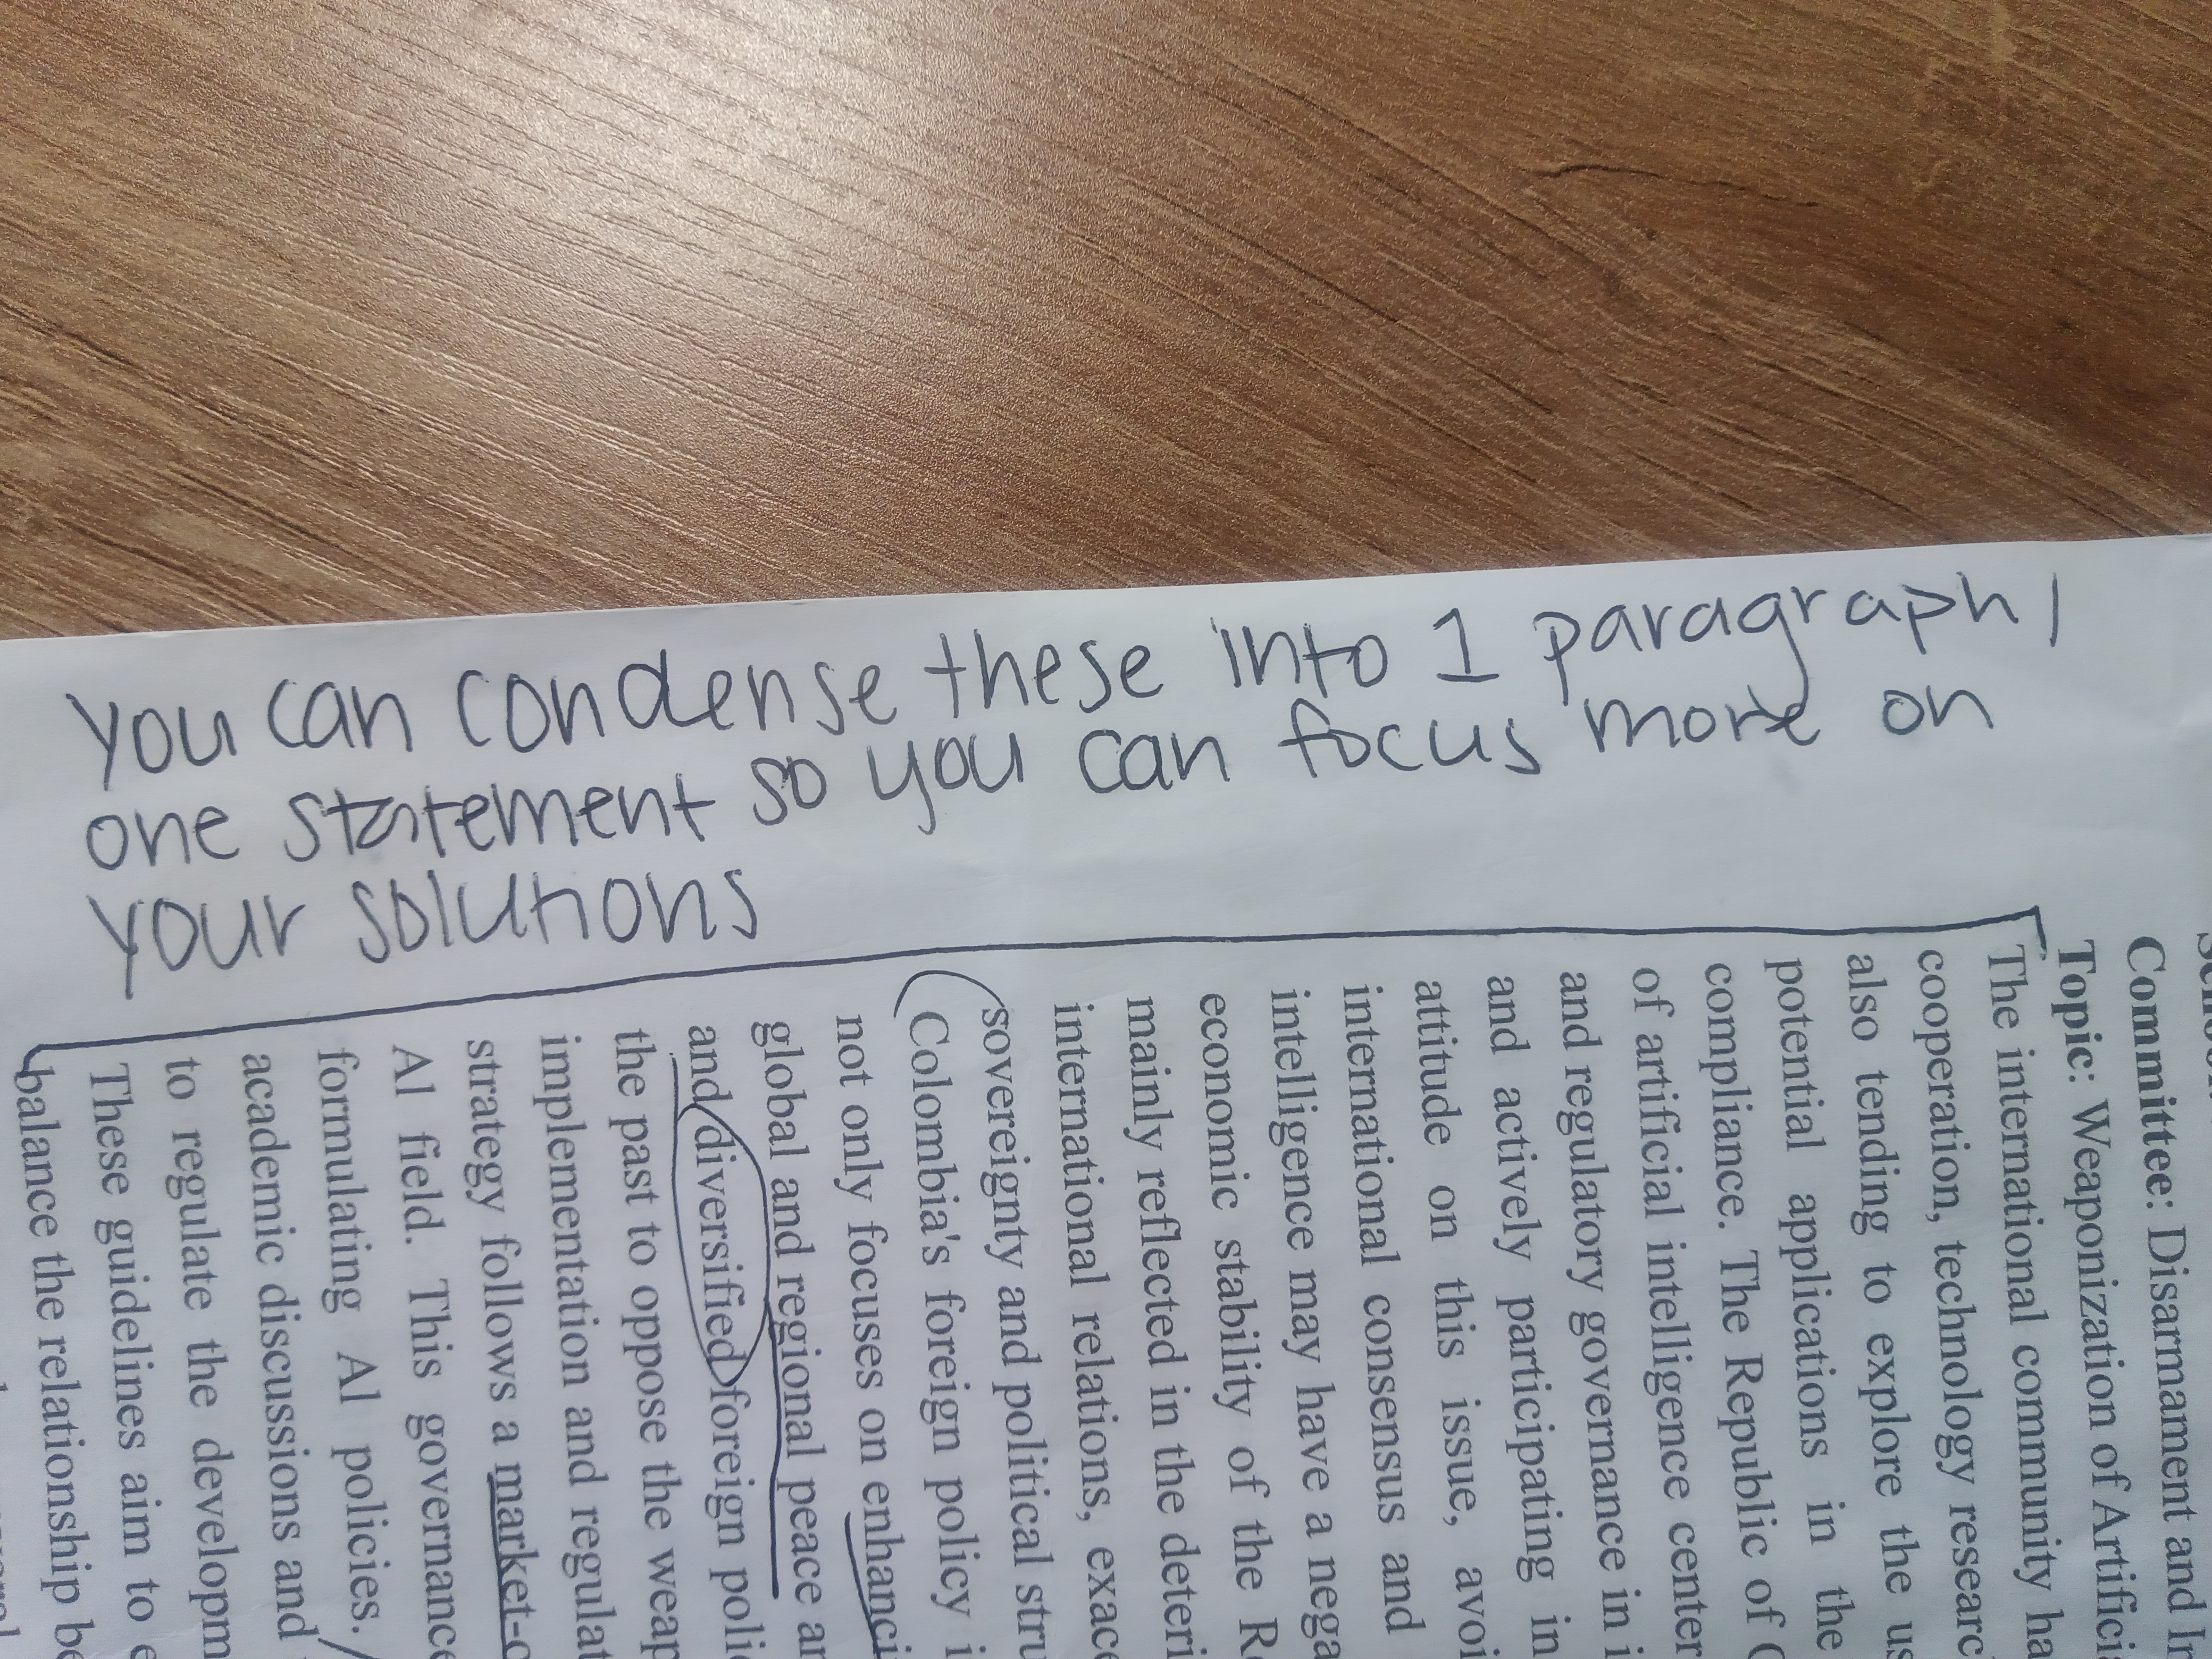 you can condense these into 1 paragraph /
one statement so you can focus more on
your solutions
Committee: Disarmament and
Topic: Weaponization of
The international community
cooperation, technology
also tending to explore the
potential applications in the
compliance. The Republic of
of artificial intelligence
and regulatory governance in
and actively participating in
attitude on this issue,
international consensus and
intelligence may have a
economic stability of the
mainly reflected in the
international relations,
sovereignty and political
Colombia's foreign policy
not only focuses on
global and regional peace
and diversified foreign
the past to oppose the
implementation and
strategy follows a
AI field. This
formulating AI policies.
academic discussions and
to regulate the
These guidelines aim to
balance the relationship